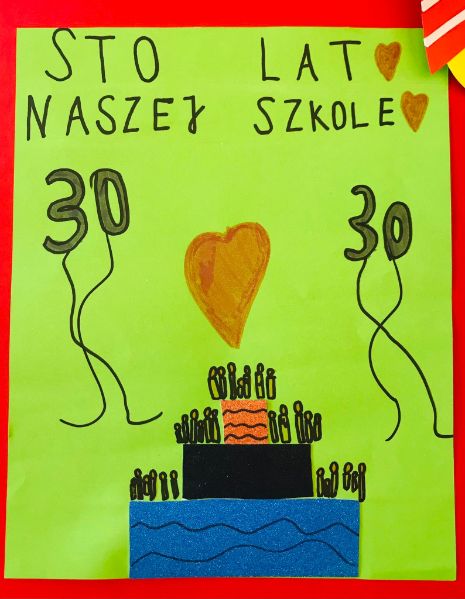 STO LAT
NASZEJ SZKOLE
30 30